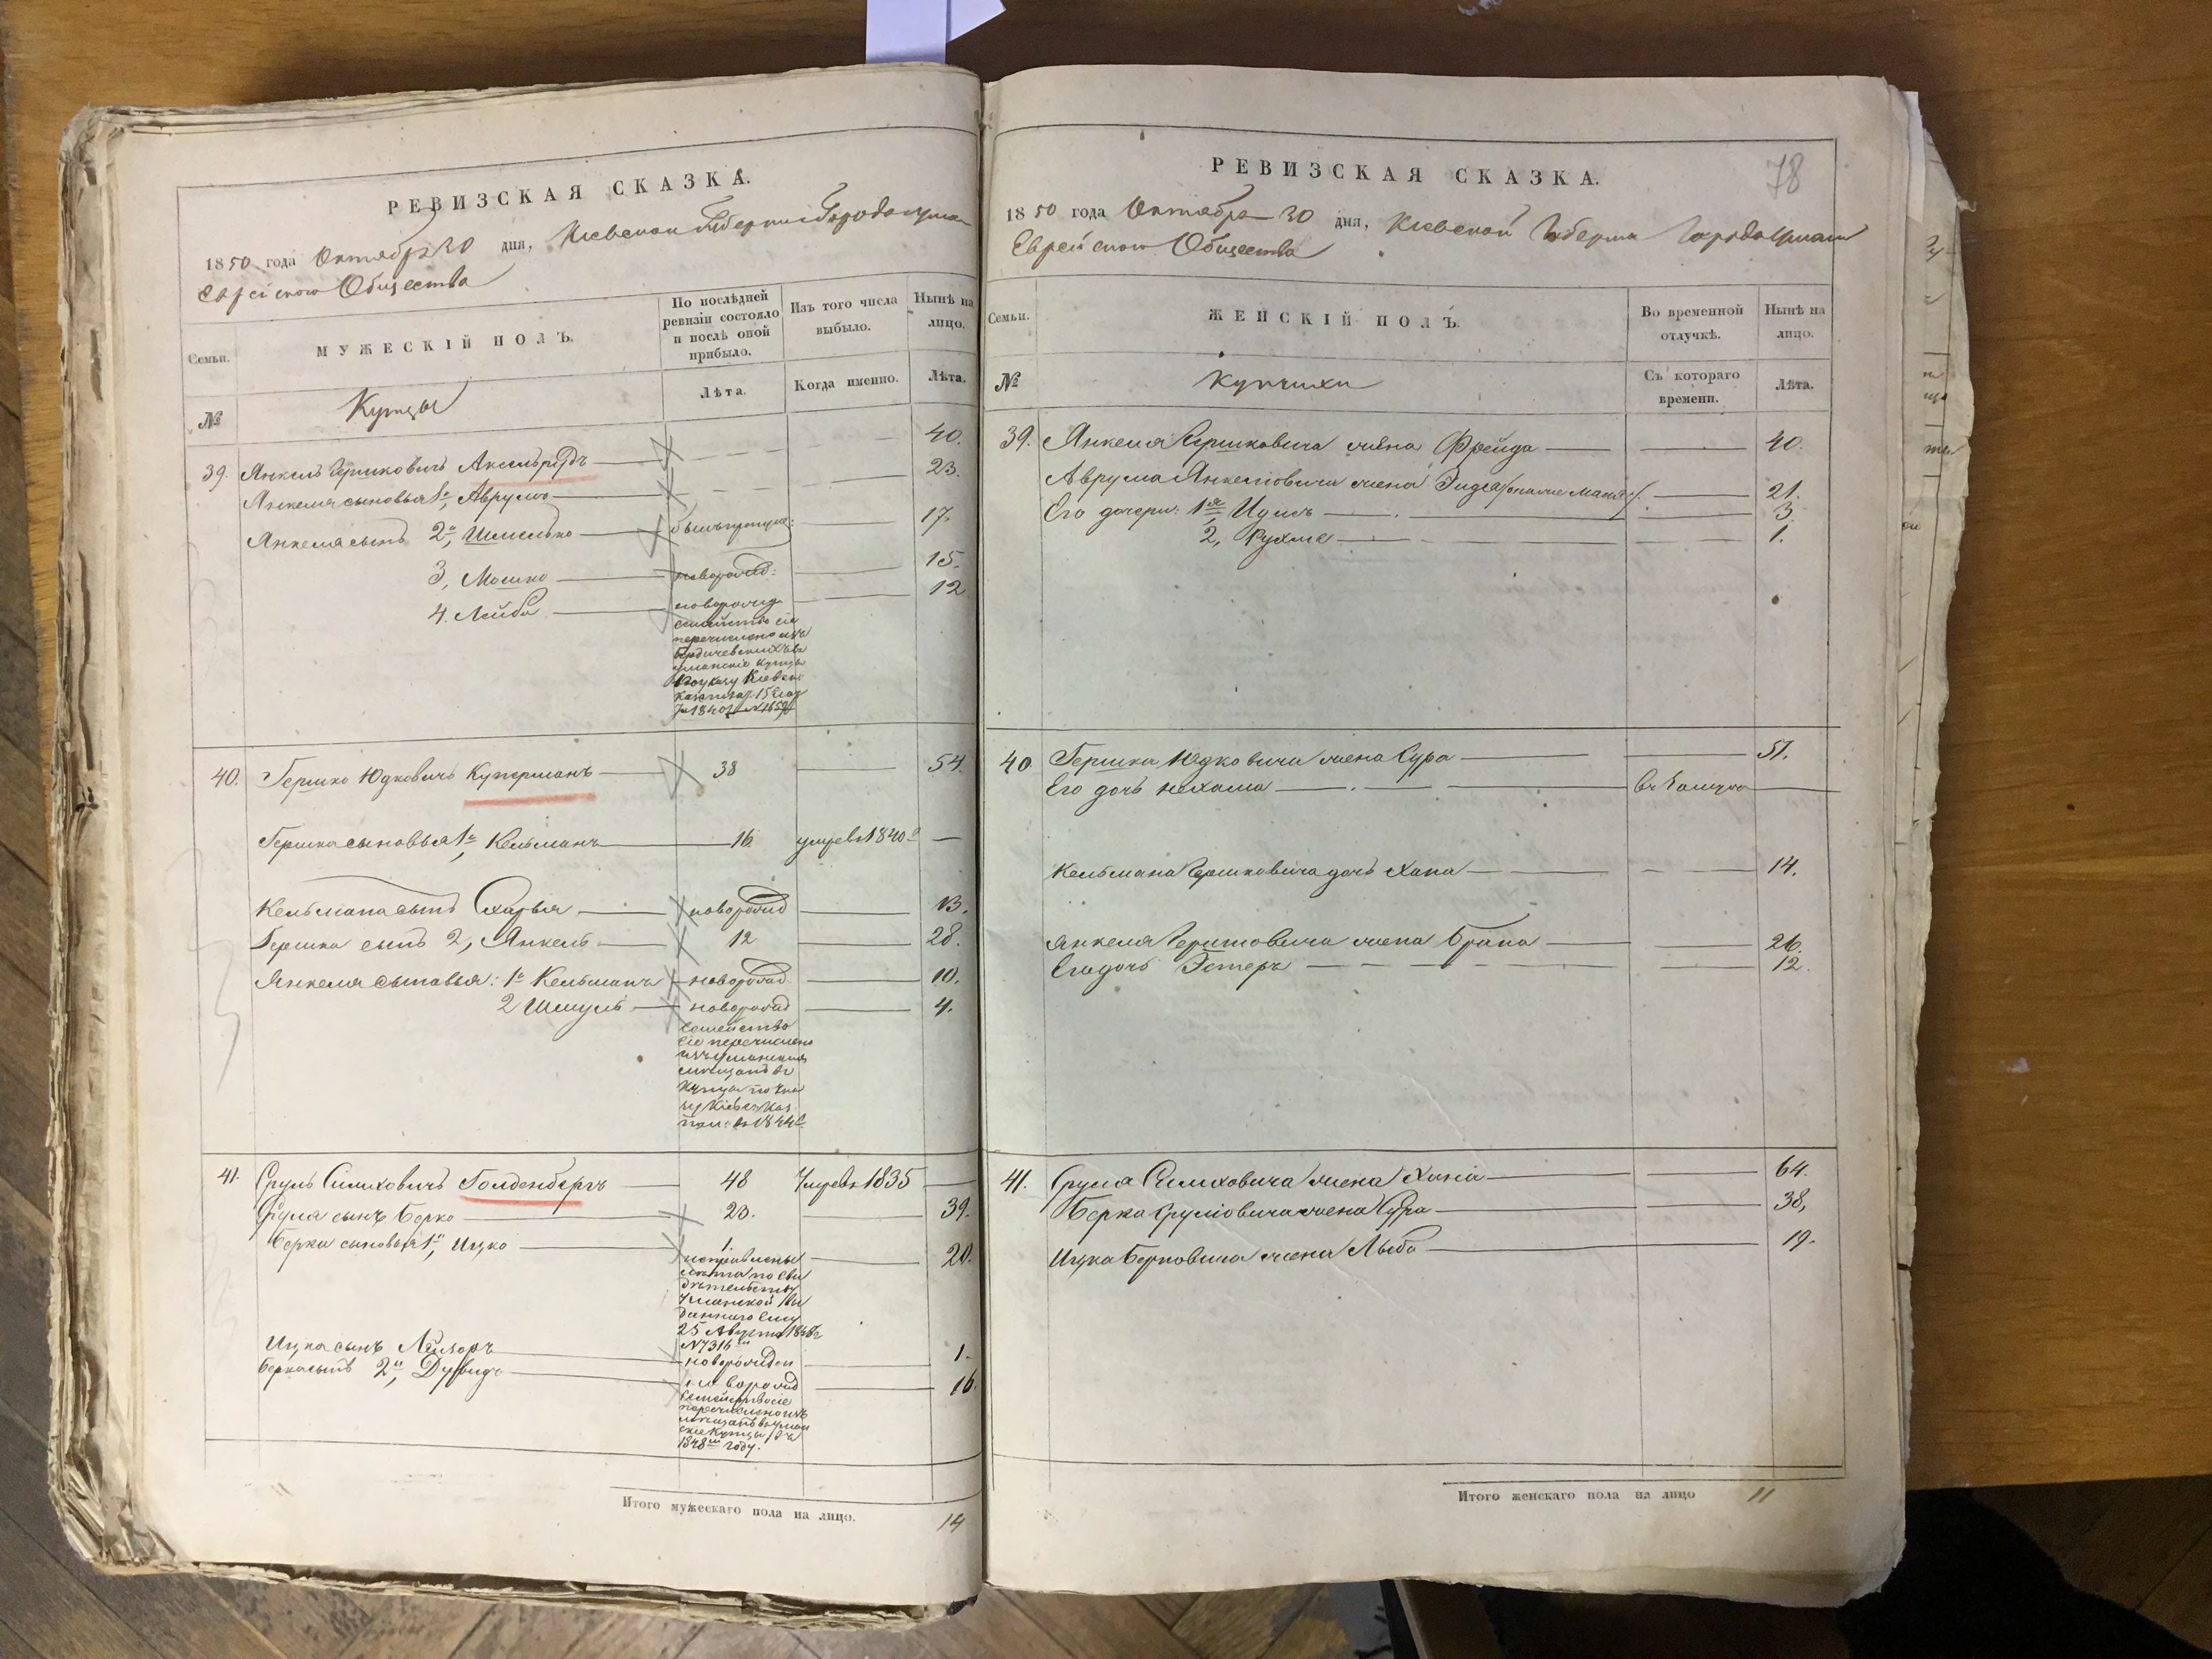 РЕВИЗСКАЯ СКАЗКА.
1850 года Октября 30 дня, Киевской Губернии Города Умани
Еврейского Общества
Семьи.
МУЖЕСКІЙ ПОЛЪ.
По послѣдней ревизіи состояло и послѣ оной прибыло.
Изъ того числа выбыло.
Нынѣ на лицо.
№
Купцы
Лѣта.
Когда именно.
Лѣта.
39. Янкель Гершковичъ Аксельрудъ 40.
Янкеля сыновья 1й, Аврумъ 23.
Янкеля сынъ 2й, Шмилько 17.
3, Мошко новорожд: 15.
4. Лейба новорожд 12
семейство сіе
перечислено изъ
Бердичевскихъ въ
уманскіе купцы
по указу Кіевск:
40. Гершко Юдковичъ Куперманъ 38 54.
Гершка сыновья 1й, Кельманъ 16 умре въ 1840 г —
Кельмана сынъ Схарья новорожд 13.
Гершка сынъ 2, Янкель 12 28.
Янкеля сыновья: 1й Кельманъ новорожд 10.
2 Шмуль новорожд 4.
семейство
сіе перечислено
изъ уманскихъ
мещанъ въ
купцы по ука
зу Кіевск Каз
пал: въ 1844 г
41. Сруль Симховичъ Голденбергъ 48 Умре въ 1835
Сруля сынъ Берко 20. 39.
Берка сыновья 1й, Ицко 1. 20.
лѣта по сви
дѣтельству
Уманской
даннаго ему
25 Августа
N7316м
Ицка сынъ Лейзоръ новорожден 1.
Берка сынъ 2й, Дувидъ новорожд 16
семейство сіе
перечислено изъ
мещанъ въ уман
скіе купцы въ
1848м году.
Итого мужескаго пола на лицо. 14
78
РЕВИЗСКАЯ СКАЗКА.
1850 года Октября 30 дня, Киевской Губернии Города Умани
Еврейского Общества
Семьи.
ЖЕНСКІЙ ПОЛЪ.
Во временной отлучкѣ.
Нынѣ на лицо.
№
Купчихи
Съ котораго времени.
Лѣта.
39. Янкеля Гершковича жена Фрейда 40.
Аврума Янкелювича жена 21.
Его дочери: 1я, 3
2, Рухля 1.
40 Гершка Юдковича жена Сура 51.
Его дочь Нехама въ замуж
Кельмана Гершковича дочь Хана 14.
Янкеля Гершковича жена Брана 26.
Его дочь Эстеръ 12.
41. Сруля Симховича жена Ханя 64.
Берка Срулiовича жена Сура 38,
Ицка Берковича жена Лыба 19.
Итого женскаго пола на лицо 11